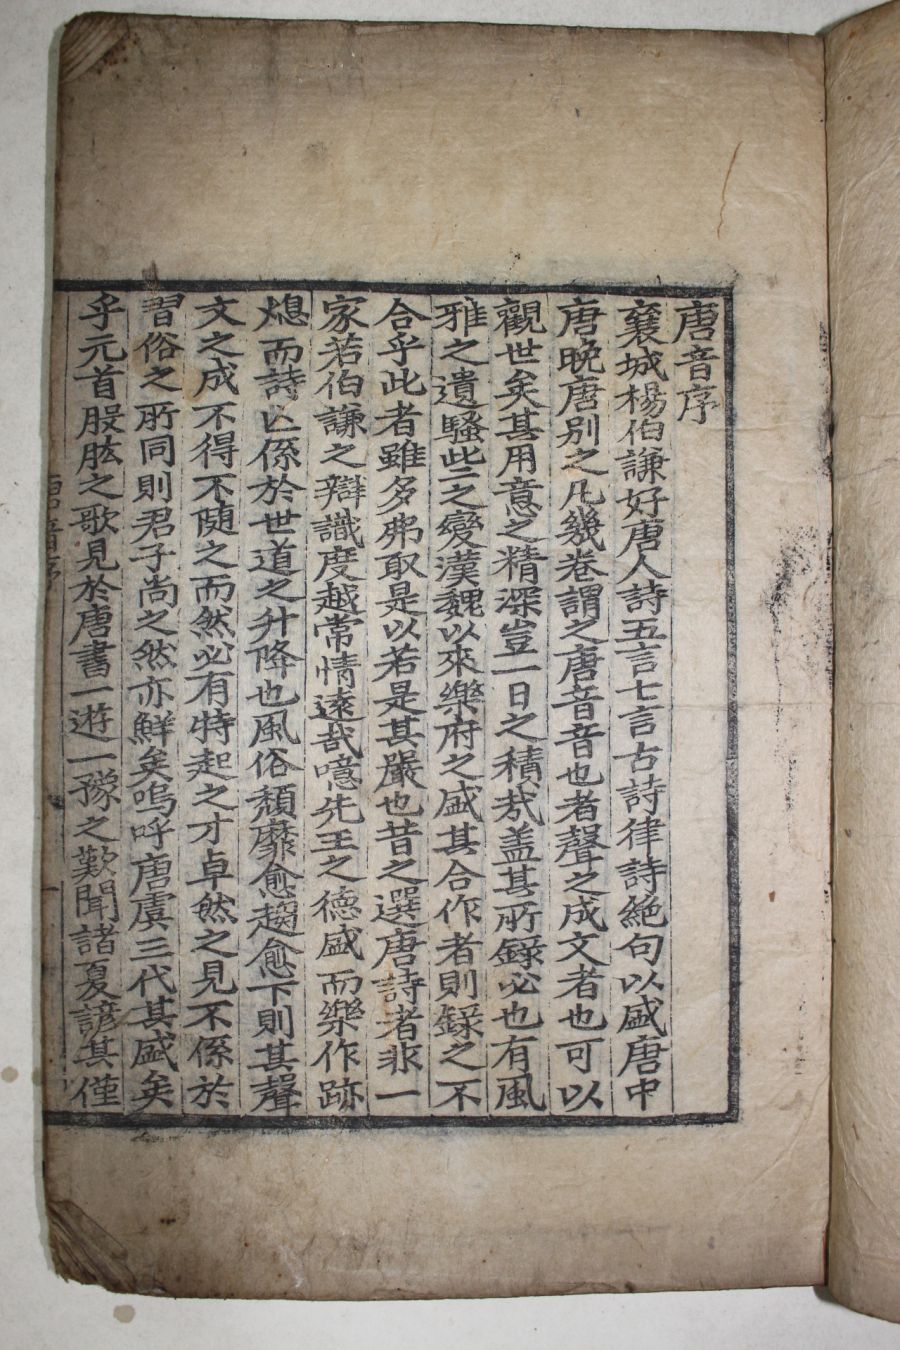 唐音序
襄城楊伯謙好唐人詩五言七言古詩律詩絶句以盛唐中
唐晚唐别之凡幾卷謂之唐音音也者聲之成文者也可以
觀世矣其用意之精深豈一日之積㢤盖其所錄必也有風
雅之遺騷些之變漢魏以來樂府之盛其合作者則錄之不
合乎此者雖多弗取是以若是其嚴也昔之選唐詩者非一
家若伯謙之辯識度越常情遠哉噫先王之德盛而樂作跡
熄而詩亾係於世道之升降也風俗頹靡愈趨愈下則其聲
文之成不得不随之而然必有特起之才卓然之見不係於
習俗之所同則君子尚之然亦鮮矣嗚呼唐虞三代其盛矣
乎元首股肱之歌見於唐書一遊一豫之歎聞諸夏諺其僅
唐音序
一